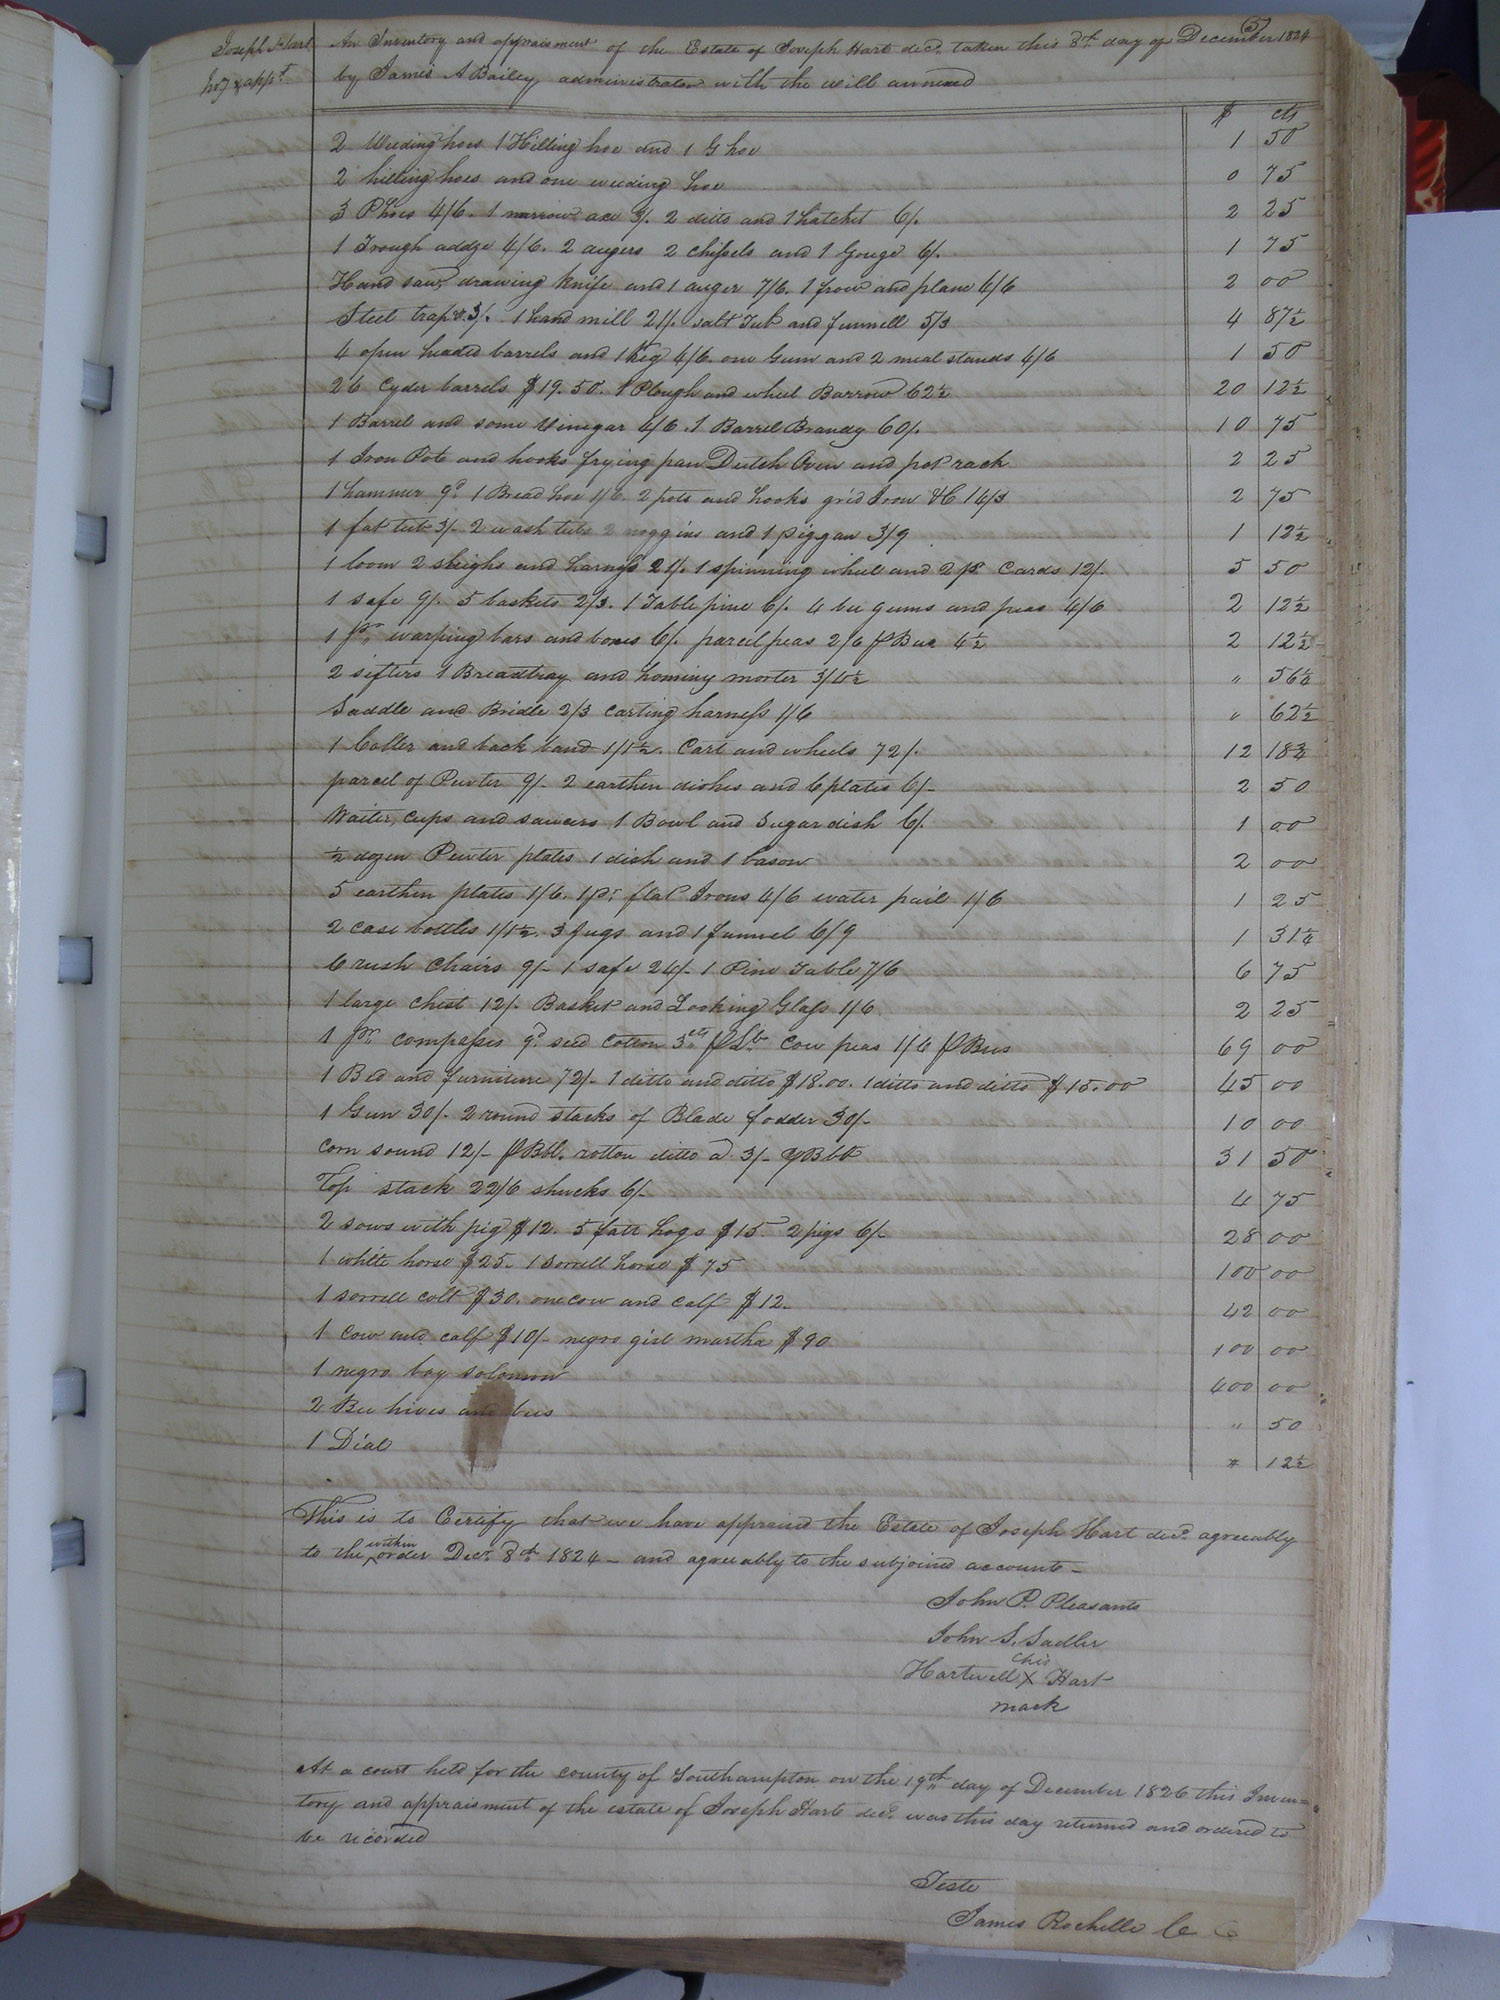 5
Joseph Hart An Inventory and appraisment of the Estate of Joseph Hart decd. taken this 8th day of December 1824
by James A Bailey administrator with the will annexed
$ cts
2 Weeding hoes 1 Hilling hoe and 1 G hoe 1 50
2 hilling hoes and one weeding hoe 0 75
3 Phoes 4/6. 1 narrow axe 3/. 2 ditto and 1 hatchet 6/. 2 25
1 Trough addze 4/6. 2 augers 2 chissels and 1 Gouge 6/. 1 75
Hand saw, drawing knife and 1 auger 7/6. 1 frow and plane 4/6 2 00
Steel trap 3/. 1 hand mill 21/. salt Tub and funnell 5/3 4 87½
4 open headed barrels and 1 keg 4/6. one Gum and 2 meal stands 4/6 1 50
26 Cyder barrels $19.50. 1 Plough and wheel Barrow 62½ 20 12½
1 Barrel and some vinegar 4/6. 1 Barrel Brandy 60/. 10 75
1 Iron Pot and hooks frying pan Dutch Oven and pot rack 2 25
1 hammer 9d. 1 Bread hoe 1/6. 2 pots and hooks grid Iron &C 14/3 2 75
1 fat tub 3/- 2 wash tubs 2 noggins and 1 piggan 3/9 1 12½
1 loom 2 sleighs and harness 21/. 1 spinning wheel and 2 pr Cards 12/. 5 50
1 safe 9/. 5 baskets 2/3. 1 Table pine 6/. 4 bee gums and peas 4/6 2 12½
1 pr. warping bars and boxes 6/. parcel peas 2/6 pBus 4½ 2 12½
2 sifters 1 Breadtray and hominy morter 3/4½ " 56¼
Saddle and Bridle 2/3 carting harness 1/6 " 62½
1 Coller and back band 1/1½. Cart and wheels 72/. 12 18¾
parcel of Pewter 9/- 2 earthen dishes and 6 plates 6/- 2 50
Waiter, cups and saucers 1 Bowl and Sugar dish 6/. 1 00
½ dozen Pewter plates 1 dish and 1 bason 2 00
5 earthen plates 1/6. 1 pr. flat Irons 4/6 water pail 1/6 1 25
2 case bottles 1/1½. 3 Jugs and 1 funnel 6/9 1 31¼
6 rush chairs 9/- 1 safe 24/- 1 Pine Table 7/6 6 75
1 large chest 12/. Basket and Looking Glass 1/6 2 25
1 pr. compasses 9d. seed cotton 3cts p Lb. cow peas 1/6 p Bus 69 00
1 Bed and furniture 72/- 1 ditto and ditto $18.00. 1 ditto and ditto $15.00 45 00
1 Gun 30/- 2 round stacks of Blade fodder 30/- 10 00
corn sound 12/- p Bbl. rotten ditto a 3/- p Bbl 31 50
Top stack 22/6 shucks 6/- 4 75
2 sows with pig $12. 5 fatt hogs $15. 2 pigs 6/- 28 00
1 white horse $25. 1 sorrell horse $75 100 00
1 sorrell colt $30. one cow and calf $12. 42 00
1 cow and calf $10/- negro girl martha $90 100 00
1 negro boy solomon 400 00
2 Bee hives and bees " 50
1 Dial " 12½
This is to Certify that we have appraised the Estate of Joseph Hart decd. agreeably
to the within order Decr. 8th 1824 - and agreeably to the subjoined account -
John P. Pleasants
John S. Sadler
his
Hartwell X Hart
mark
At a court held for the county of Southampton on the 19th day of December 1826 this Inven=
tory and appraisment of the estate of Joseph Hart decd. was this day returned and ordered to
be recorded
Teste
James Rochelle C C